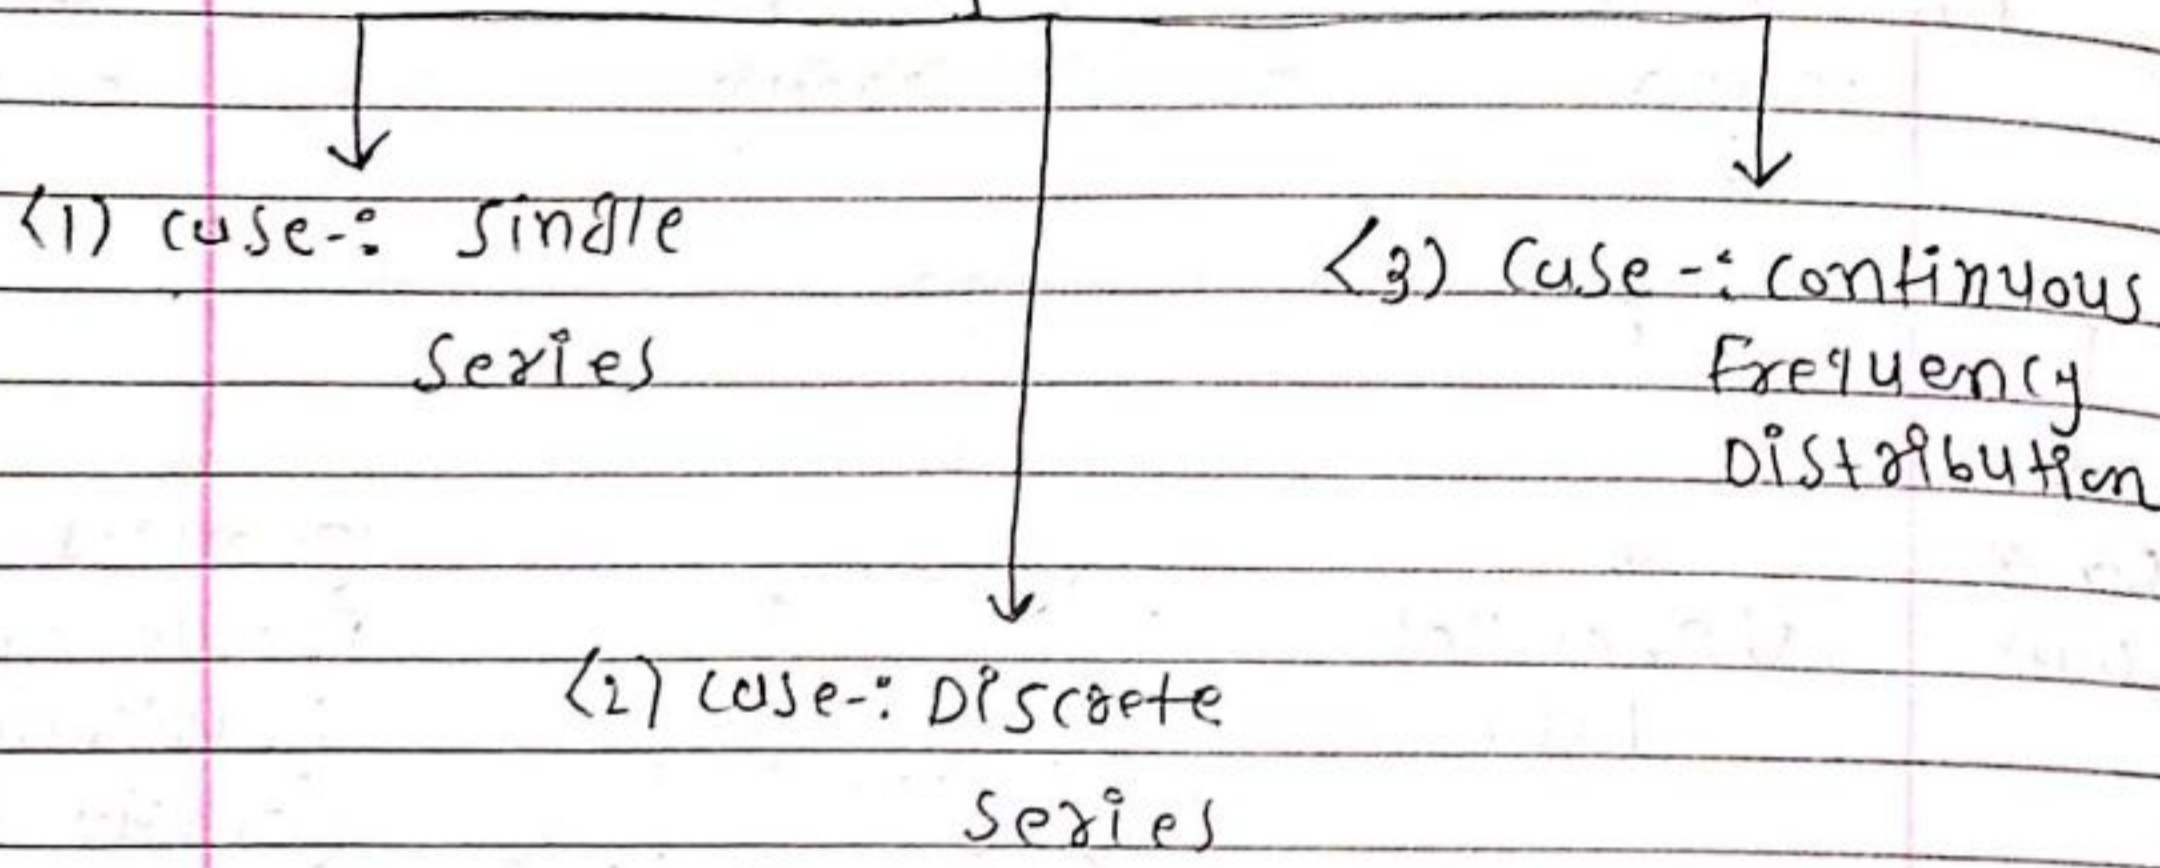 (1) case-: single
series
(3) case-: continuous
Frequency
Distribution
(2) case-: Discrete
series